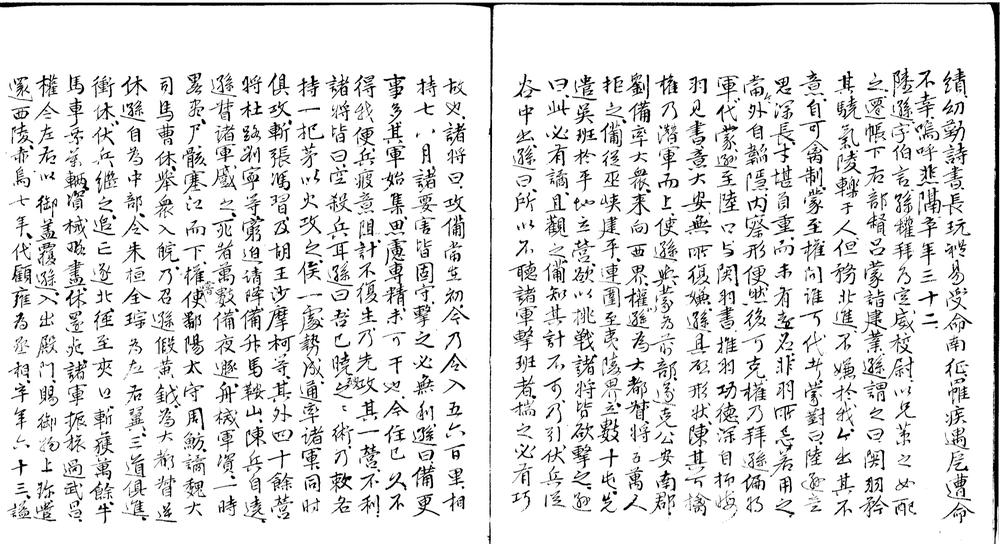 績幼勤詩書長玩禮易受命南征罹疾遇厄遭命
不幸嗚呼悲隔卒年三十二
陸遜字伯言孫權拜為定威校尉以兄策之女配
之還帳下右部督呂蒙詣建業遜謂之曰関羽矜
其驍氣陵轢于人但務北進不嫌於我今出其不
意自可禽制蒙至權問誰可代者蒙對曰陸遜意
思深長才堪負重而未有遠名非羽所忌若用之
當外自韜隱内察形便然後可克權乃拜遜偏將
軍代蒙遜至陸口与関羽書推羽功德深自抑悔
羽見書意大安無所復嫌遜具啓形狀陳其可擒
權乃潜軍而上使遜與蒙為前部遂克公安南郡
劉備率大衆来向西界權遜為大都督將五萬人
拒之備從巫峡建平連圍至夷陵界立數十屯先
遣吳班於平地立營欲以挑戰諸將皆欲擊之遜
曰此必有譎且觀之備知其計不可乃引伏兵從
谷中出遜曰所以不聽諸軍擊班者揣之必有巧
故也諸將曰攻備當在初今乃令入五六百里相
持七八月諸要害皆固守擊之必無利遜曰備更
事多其軍始集思慮專精未可干也今住已久不
得我便兵疲意阻計不復生乃先攻其一營不利
諸將皆曰空殺兵耳遜曰吾已曉之術乃敕各
持一把茅以火攻之俟一處勢成通率諸軍同時
俱攻斬張馮習及胡王沙摩柯等其外四十餘營
將杜路劉寧等窮迫請降備升馬鞍山陳兵自遶
遜督諸軍蹙之死者萬數備夜遯舟械軍資一時
畧盡尸骸塞江而下權使鄱陽太守周魴譎魏大
司馬曹休舉衆入皖乃召遜假黄鉞為大都督逆
休遜自為中部令朱桓全琮為左右翼三道俱進
衝休伏兵継之追亡逐北徑至夾口斬獲萬餘牛
馬車乘萬輌資械略盡休還死諸軍振旅過武昌
權令左右以御盖覆遜入出殿門賜御物上珍遣
還西陵赤烏七年代顧雍為丞相卒年六十三諡